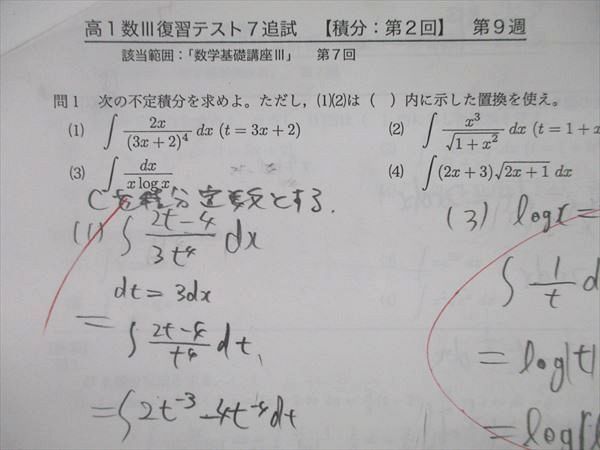 高1数Ⅲ復習テスト7追試 【積分:第2回】 第9週
該当範囲:「数学基礎講座Ⅲ」 第7回
問1 次の不定積分を求めよ。ただし,(1)(2)は( )内に示した置換を使え。
(1) ∫ 2x/(3x+2)^4 dx (t = 3x+2)
(2) ∫ x^3/√(1+x^2) dx (t = 1+x
(3) ∫ dx/(x log x)
(4) ∫(2x+3)√(2x+1) dx
Cを積分定数とする.
(1) ∫ (2t-4)/(3t^4) dx
dt = 3dx
= ∫ (2t-4)/t^4 dt
= ∫ 2t^-3 - 4t^-4 dt
(3) logx =
∫ 1/t d
= log|t|
= log|l